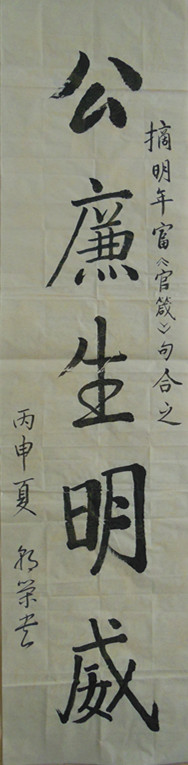 摘明年富《官箴》句合之
公廉生明威
丙申夏 荣书